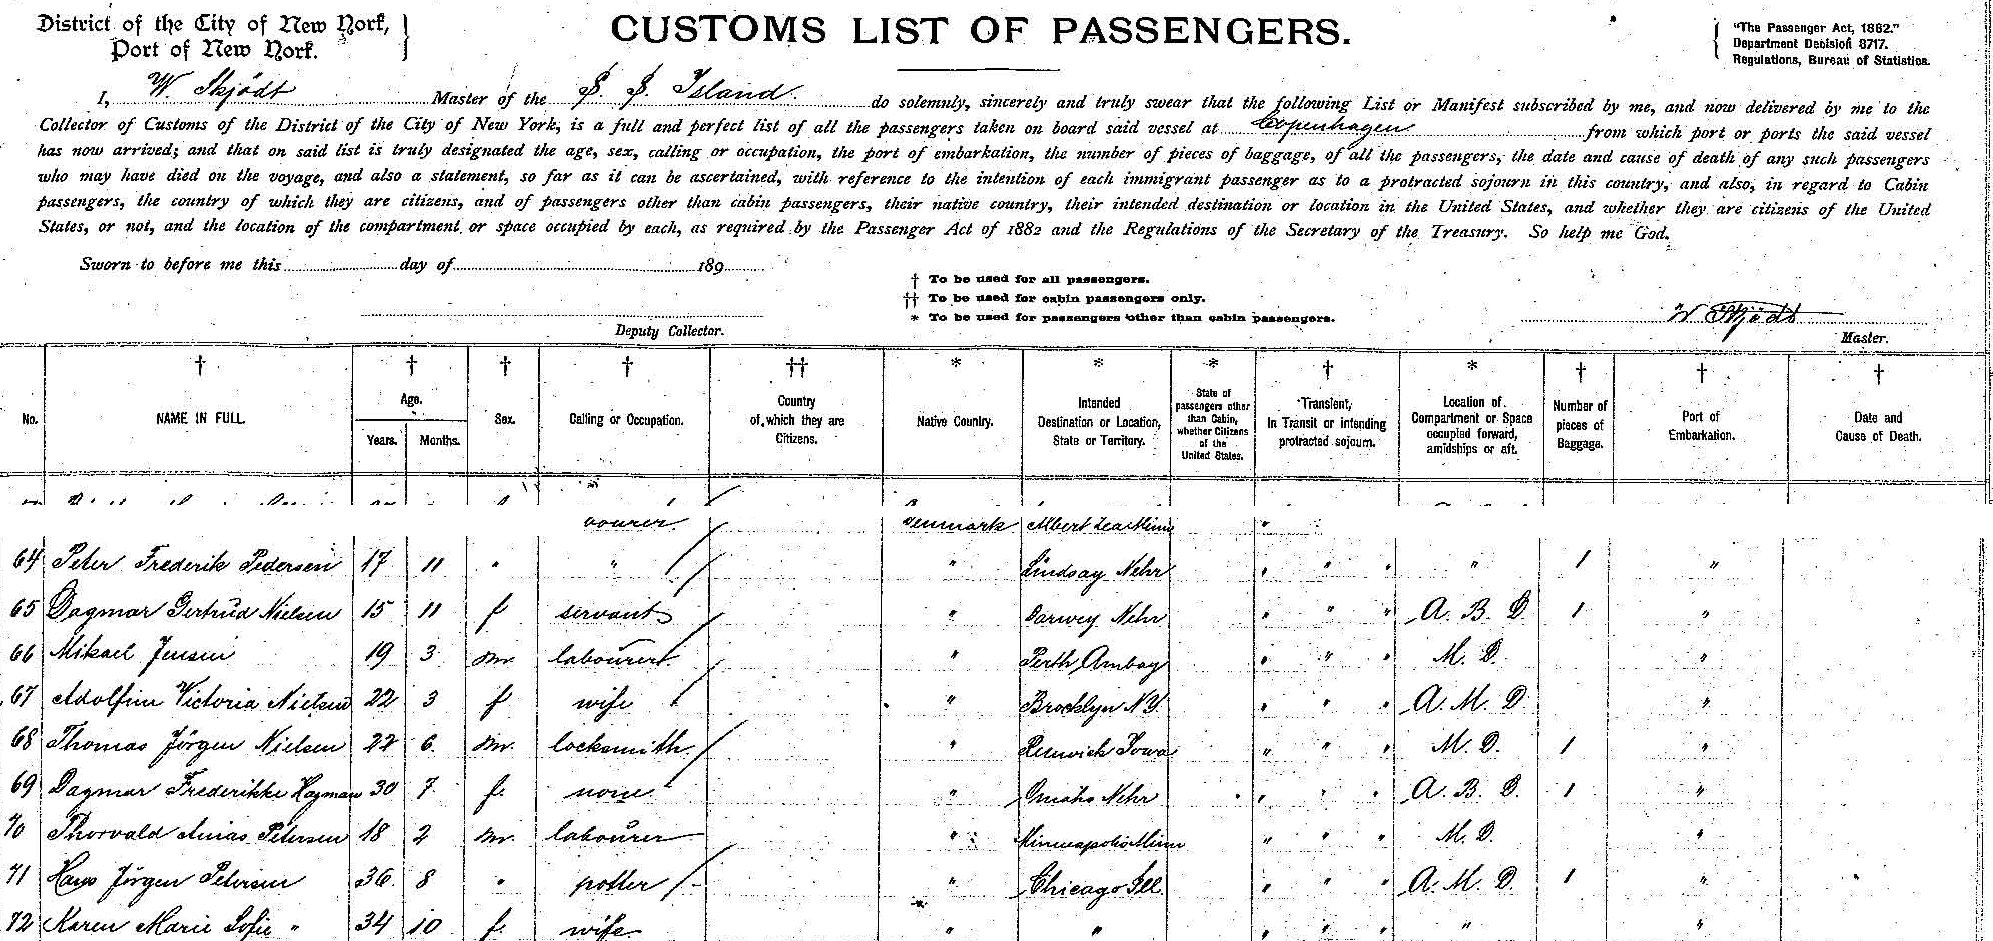 District of the City of New York,
Port of New York.
CUSTOMS LIST OF PASSENGERS.
"The Passenger Act, 1882."
Department Decision 8717.
Regulations, Bureau of Statistics.
I, W. Skjödt Master of the S. S. Island. do solemnly, sincerely and truly swear that the following List or Manifest subscribed by me, and now delivered by me to the
Collector of Customs of the District of the City of New York, is a full and perfect list of all the passengers taken on board said vessel at Copenhagen from which port or ports the said vessel
has now arrived; and that on said list is truly designated the age, sex, calling or occupation, the port of embarkation, the number of pieces of baggage, of all the passengers, the date and cause of death of any such passengers
who may have died on the voyage, and also a statement, so far as it can be ascertained, with reference to the intention of each immigrant passenger as to a protracted sojourn in this country, and also, in regard to Cabin
passengers, the country of which they are citizens, and of passengers other than cabin passengers, their native country, their intended destination or location in the United States, and whether they are citizens of the United
States, or not, and the location of the compartment or space occupied by each, as required by the Passenger Act of 1882 and the Regulations of the Secretary of the Treasury. So help me God.
Sworn to before me this day of 189
† To be used for all passengers.
†† To be used for cabin passengers only.
* To be used for passengers other than cabin passengers.
Deputy Collector.
W Skjödt
Master.
† † † † †† * * * † * † † †
No. NAME IN FULL. Age. Years. Months. Sex. Calling or Occupation. Country of which they are Citizens. Native Country. Intended Destination or Location, State or Territory. State of passengers other than Cabin, whether Citizens of the United States. Transient, In Transit or intending protracted sojourn. Location of Compartment or Space occupied forward, amidships or aft. Number of pieces of Baggage. Port of Embarkation. Date and Cause of Death.
Denmark Albert Lea Minn "
64 Peter Frederik Pedersen 17 11 " " " Lindsay Nebr " " " " 1 "
65 Dagmar Gertrud Nielsen 15 11 f servant " Nebr " " " A. B. D. 1 "
66 Mikael Jensen 19 3 m. labourer " Perth Amboy " " " M. D. "
67 Adolfin Victoria Nielsen 22 3 f wife " Brooklyn N.Y. " " " A. M. D. "
68 Thomas Jörgen Nielsen 22 6. m. locksmith " Renwick Iowa " " " M. D. 1 "
69 Dagmar Frederikke Hagman 30 7 f. none " Omaha Nebr " " " A. B. D. 1 "
70 Thorvald Petersen 18 2 m. labourer " Minneapolis Minn " " " M. D. "
71 Hans Jörgen Petersen 36 8 " potter " Chicago Ill. " " " A. M. D. 1 "
72 Karen Marie Sofie " 34 10 f. wife " " " " " " "